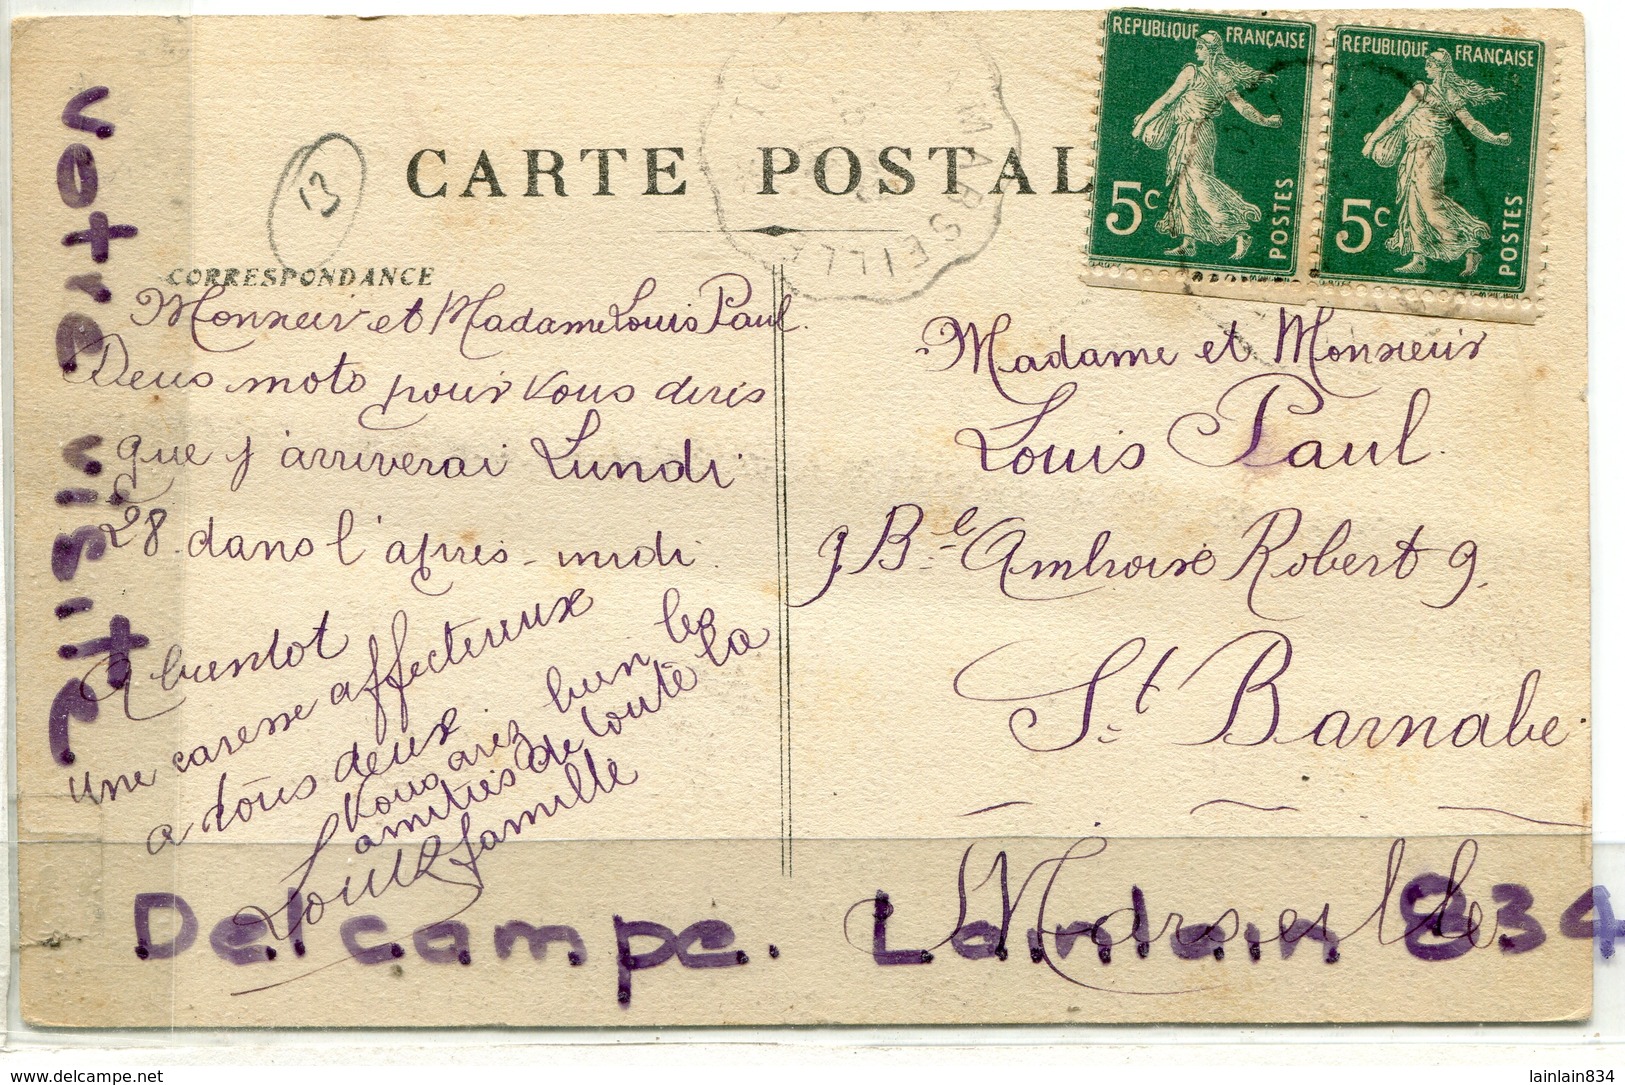 CARTE POSTAL
RÉPUBLIQUE FRANÇAISE
5c
POSTES
RÉPUBLIQUE FRANÇAISE
5c
POSTES
MARSEILLE
13
CORRESPONDANCE
Monsieur et Madame Louis Paul.
Deux mots pour vous dires
que j'arriverai Lundi
28. dans l'après-midi.
A bientot
une caresse affectueuse
a tous deux
Vous avez bien les
amitiés de toute la
famille
Louis
Madame et Monsieur
Louis Paul.
9 Ble Ambroise Robert 9.
St. Barnabe
Marseille
votre visite
Delcampe. Lainlain 834
www.delcampe.net
lainlain834